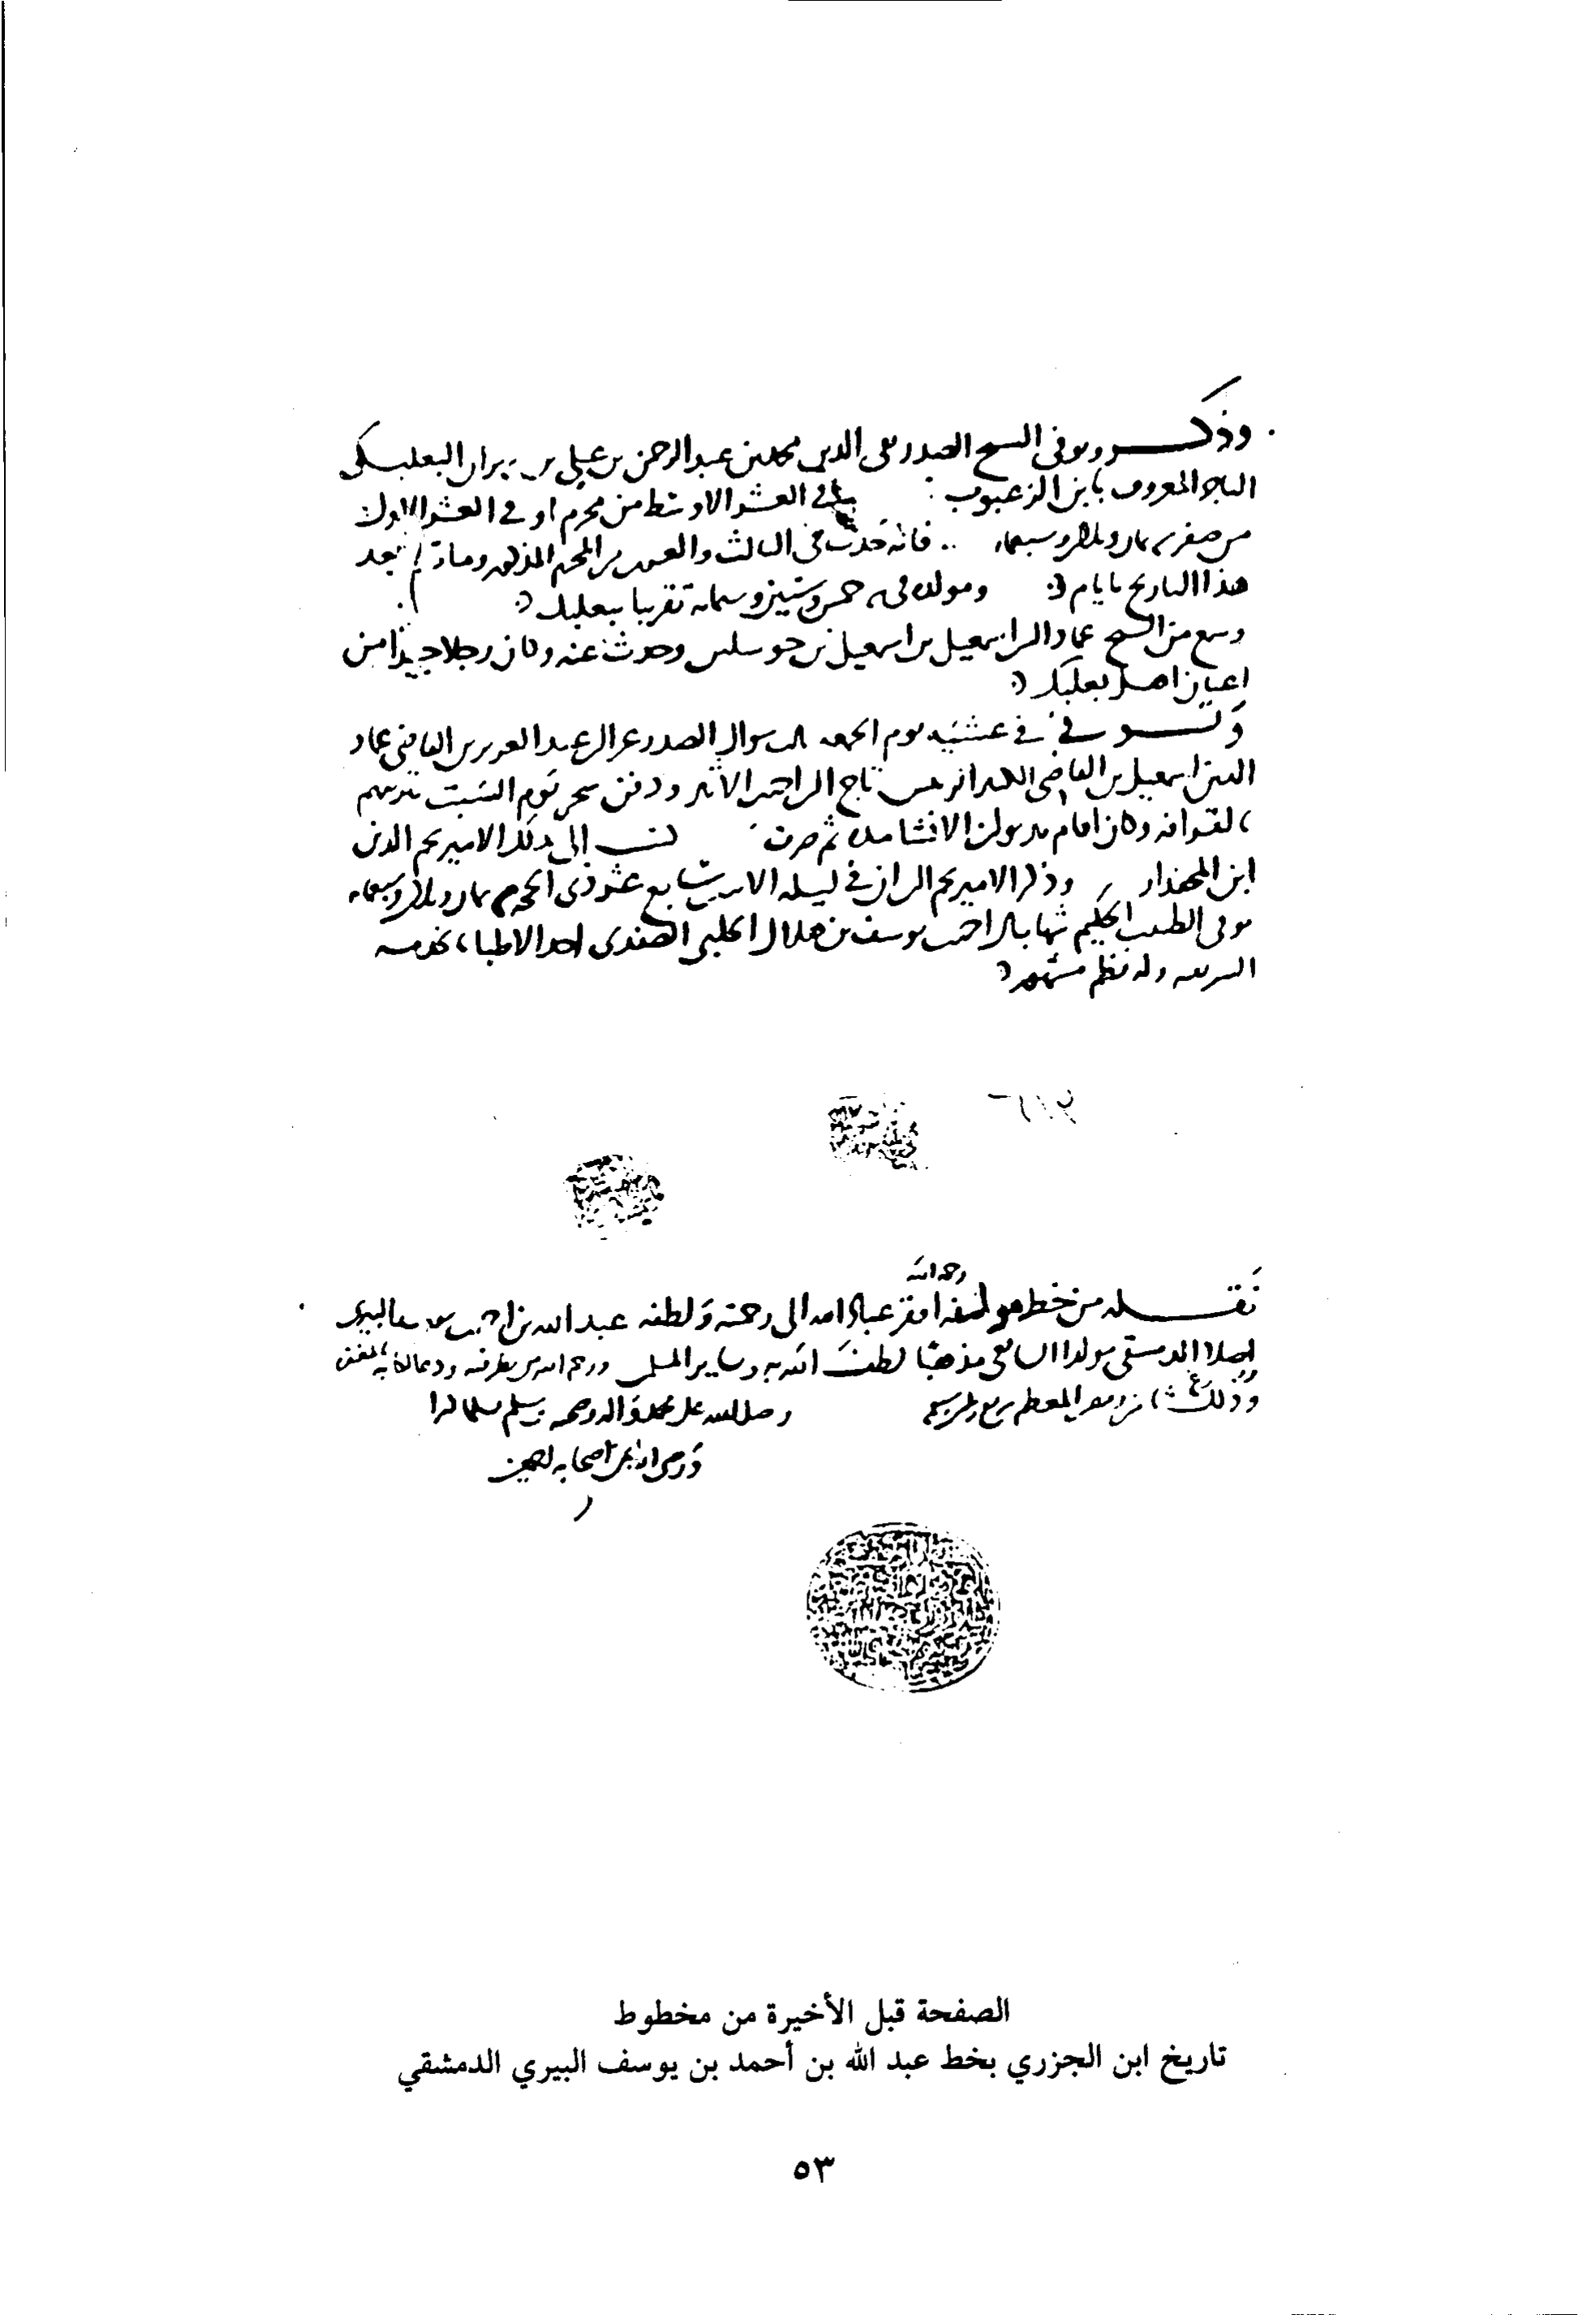 وذكر وتوفى الشيخ الصدر تقى الدين محمد بن عبد الرحمن بن علي بن البعلبكى
التاجر المعروف بابن الزعبوب فى العشر الاوسط من محرم او فى العشر الاول
من صفر سنه ثمان وثلاثين وسبعمايه فانه حدث فى الثالث والعشرين من المحرم المذكور ومات بعد
هذا التاريخ بايام ومولده فى سنه خمس وستين وستمايه تقريبا ببعلبك
وسمع من الشيخ عماد الدين اسمعيل بن اسمعيل بن جوسلين وحدث عنه وكان رجلا جيدا من
اعيان اهل بعلبك
وتوفى فى عشيه يوم الجمعه شوال الصدر عز الدين عبد العزيز بن القاضى عماد
الدين اسمعيل بن القاضى تاج الدين احمد بن الاثير ودفن سحر يوم السبت بتربتهم
بالقرافه وكان امام ثم صرف كتب الى بذلك الامير نجم الدين
ابن المحفدار وذكر الامير نجم الدين ان فى ليله سابع عشر ذى الحجه سنه ثمان وثلاثين وسبعمايه
توفى الطبيب الحكيم شهاب الدين احمد بن يوسف بن هلال الحلبى الصفدى احد الاطباء بخدمه
الشريفه وله نظم مشهور
رحمه الله
نقله من خط مولفه افقر عباد الله الى رحمته ولطفه عبد الله بن احمد بن يوسف البيرى
اصلا الدمشقى مولدا الشافعى مذهبا لطف الله به وبساير المسلمين ورحم الله من نظر فيه ودعا لكاتبه بالمغفره
وذلك فى المعظم وصلى الله على محمد واله وصحبه وسلم تسليما كثيرا
ورضى الله عن اصحابه اجمعين
الصفحة قبل الأخيرة من مخطوط
تاريخ ابن الجزري بخط عبد الله بن أحمد بن يوسف البيري الدمشقي
٥٣